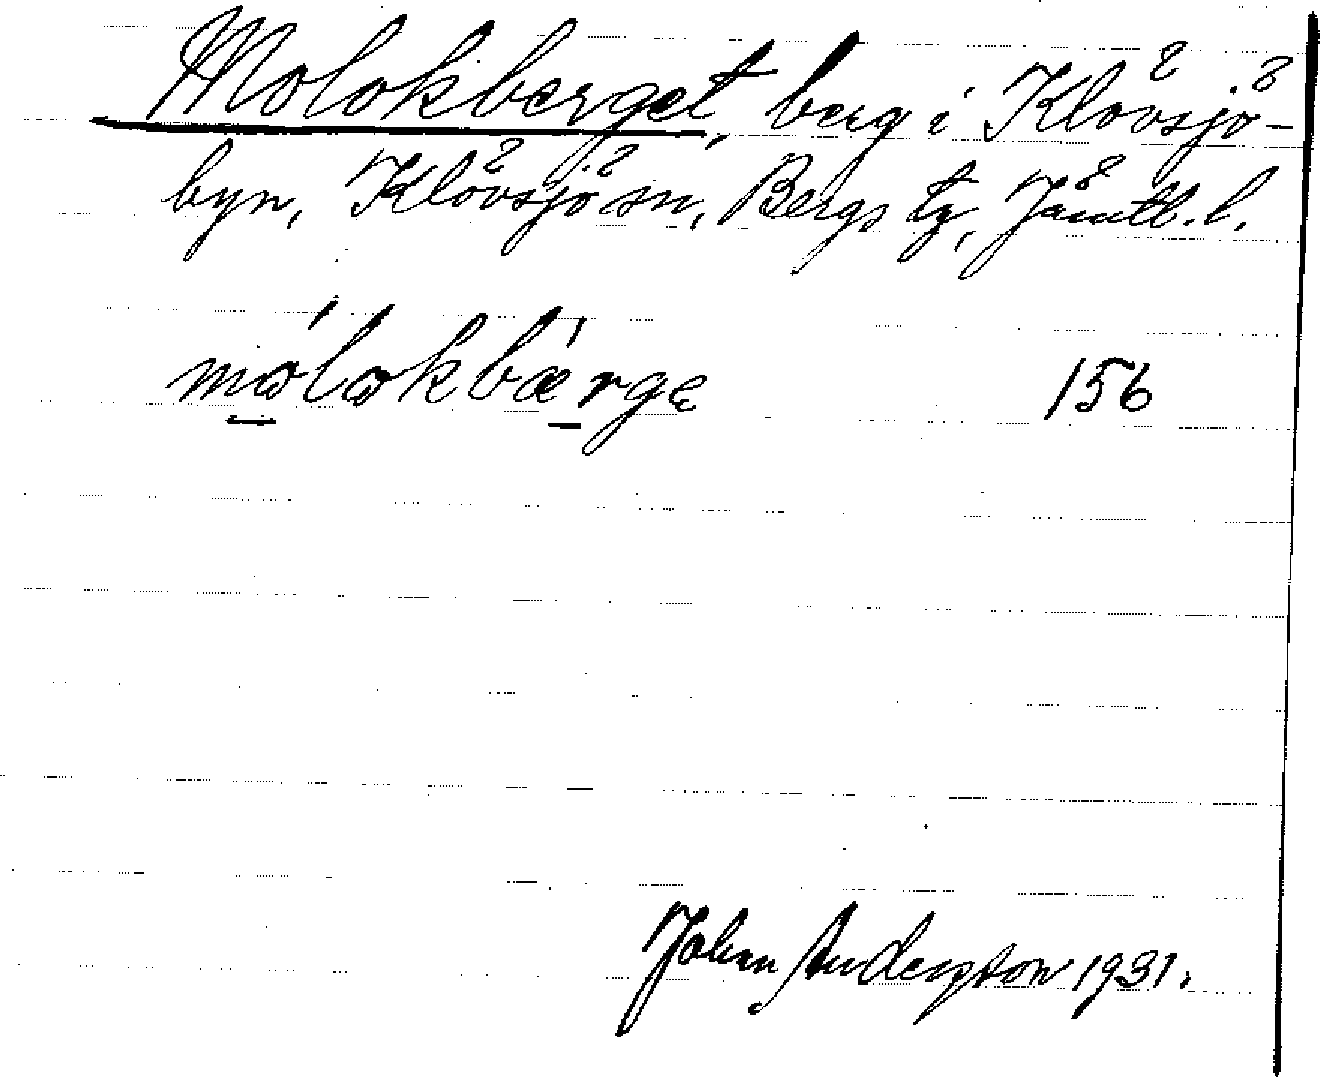 Molokberget, berg i Klövsjö-
byn, Klövsjö sn, Bergs tg, Jämtl. l.
mólokbǽrgę 156
Johan Andersson 1931.